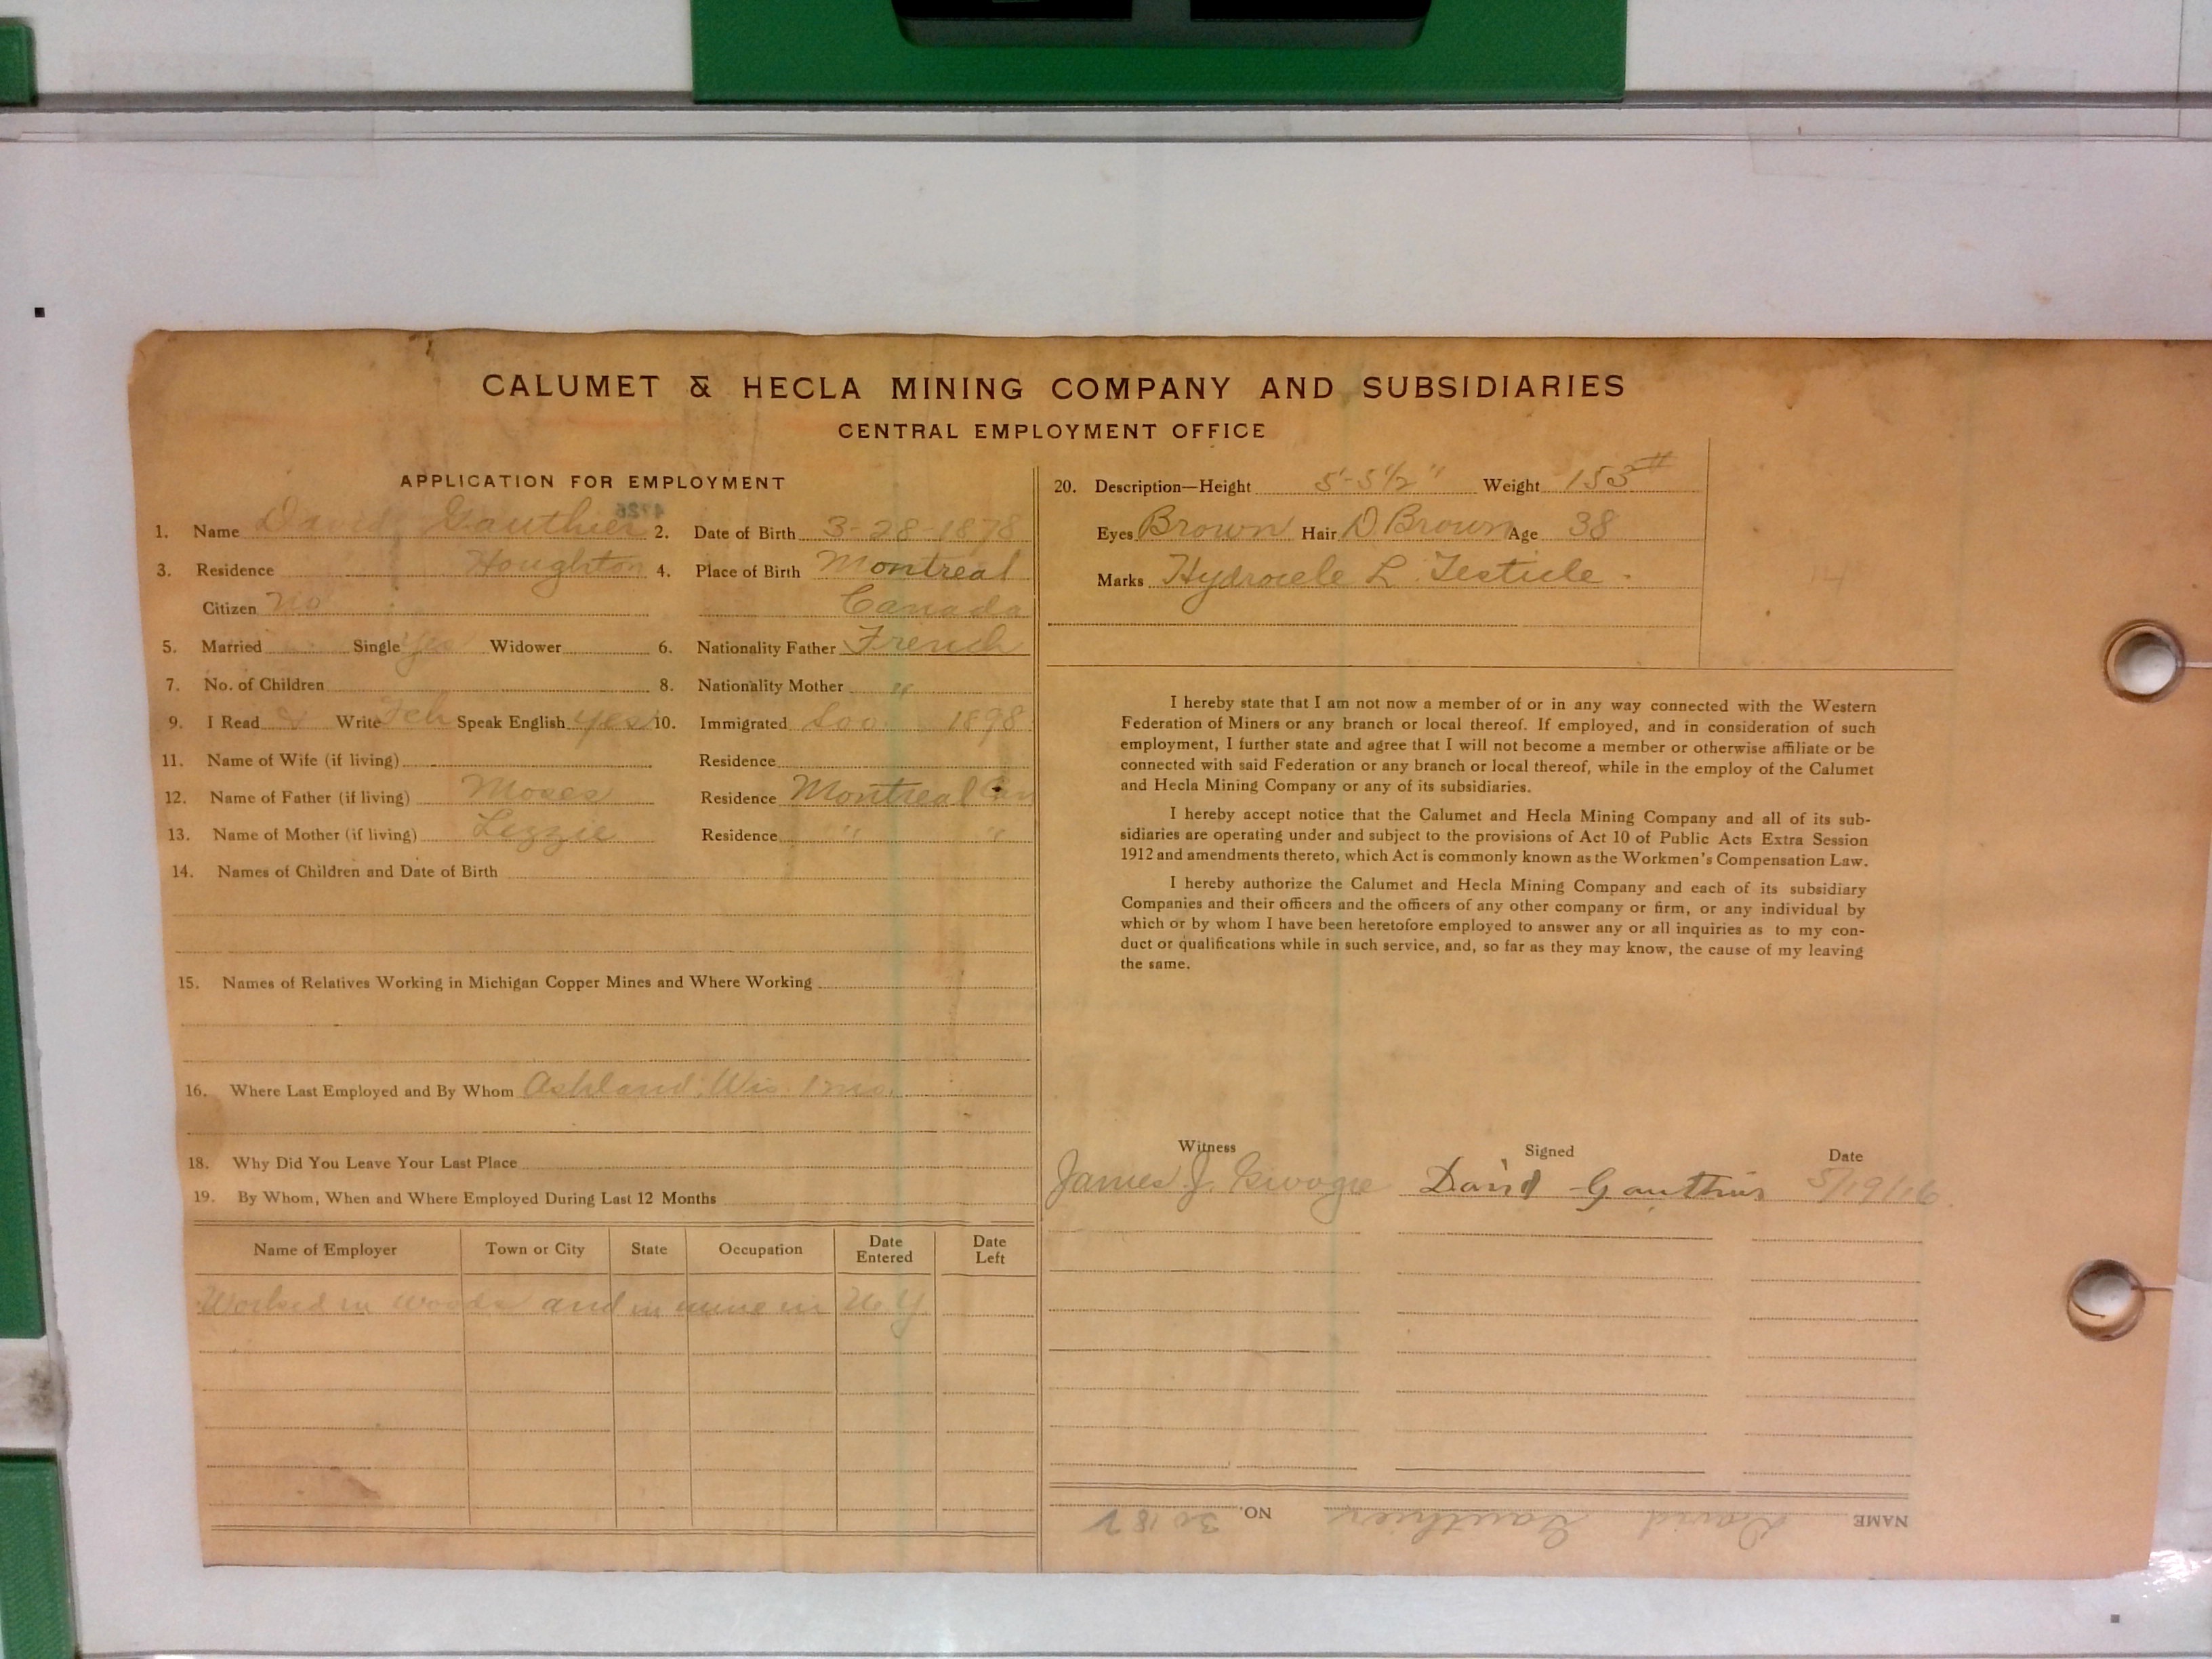 CALUMET & HECLA MINING COMPANY AND SUBSIDIARIES
CENTRAL EMPLOYMENT OFFICE
APPLICATION FOR EMPLOYMENT
4726
1. Name David Gauthier 2. Date of Birth 3-28-1878
3. Residence Houghton 4. Place of Birth Montreal
Citizen No Canada
5. Married Single Yes Widower 6. Nationality Father French
7. No. of Children 8. Nationality Mother "
9. I Read & Write Fch Speak English yes 10. Immigrated Soo. 1898
11. Name of Wife (if living) Residence
12. Name of Father (if living) Moses Residence Montreal Can
13. Name of Mother (if living) Lizzie Residence " "
14. Names of Children and Date of Birth
15. Names of Relatives Working in Michigan Copper Mines and Where Working
16. Where Last Employed and By Whom Ashland, Wis. 1 mo.
18. Why Did You Leave Your Last Place
19. By Whom, When and Where Employed During Last 12 Months
Name of Employer Town or City State Occupation Date Entered Date Left
Worked in woods and in mine in N.Y.
20. Description—Height 5'-5 1/2" Weight 153#
Eyes Brown Hair D Brown Age 38
Marks Hydrocele L. Testicle.
I hereby state that I am not now a member of or in any way connected with the Western
Federation of Miners or any branch or local thereof. If employed, and in consideration of such
employment, I further state and agree that I will not become a member or otherwise affiliate or be
connected with said Federation or any branch or local thereof, while in the employ of the Calumet
and Hecla Mining Company or any of its subsidiaries.
I hereby accept notice that the Calumet and Hecla Mining Company and all of its sub-
sidiaries are operating under and subject to the provisions of Act 10 of Public Acts Extra Session
1912 and amendments thereto, which Act is commonly known as the Workmen's Compensation Law.
I hereby authorize the Calumet and Hecla Mining Company and each of its subsidiary
Companies and their officers and the officers of any other company or firm, or any individual by
which or by whom I have been heretofore employed to answer any or all inquiries as to my con-
duct or qualifications while in such service, and, so far as they may know, the cause of my leaving
the same.
Witness Signed Date
James J. David Gauthier 5/19/16
NAME David Gauthier NO. 30187